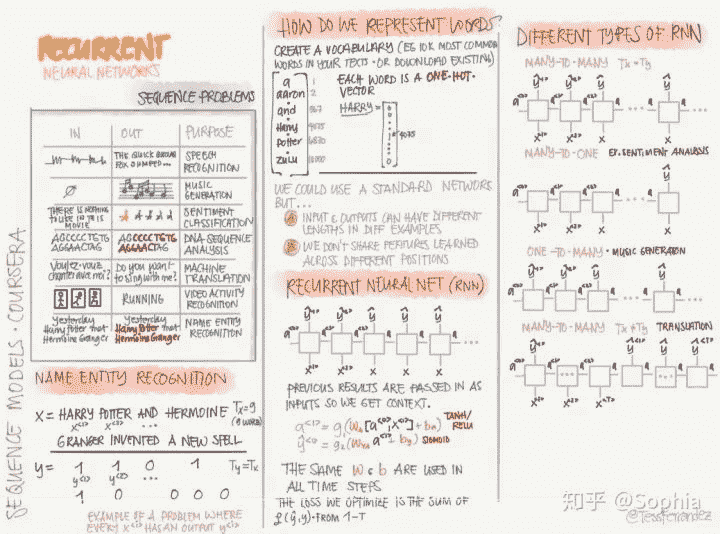 RECURRENT
NEURAL NETWORKS
SEQUENCE PROBLEMS
IN OUT PURPOSE
THE QUICK BROWN FOX JUMPED... SPEECH RECOGNITION
∅ MUSIC GENERATION
THERE IS NOTHING TO LIKE IN THIS MOVIE SENTIMENT CLASSIFICATION
AGCCCCTGTG AGGAACTAG AGCCCCTGTG AGGAACTAG DNA-SEQUENCE ANALYSIS
Voulez-vous chanter avec moi? Do you want to sing with me? MACHINE TRANSLATION
RUNNING VIDEO ACTIVITY RECOGNITION
Yesterday Harry Potter met Hermione Granger Yesterday Harry Potter met Hermione Granger NAME ENTITY RECOGNITION
SEQUENCE MODELS · COURSERA
NAME ENTITY RECOGNITION
X = HARRY POTTER AND HERMOINE Tx=9
x<1> x<2> ... (9 WORDS)
GRANGER INVENTED A NEW SPELL
y = 1 1 0 1 Ty=Tx
y<1> y<2> ...
1 0 0 0 0
EXAMPLE OF A PROBLEM WHERE
EVERY X<i> HAS AN OUTPUT y<i>
HOW DO WE REPRESENT WORDS?
CREATE A VOCABULARY (EG 10K MOST COMMON
WORDS IN YOUR TEXTS · OR DOWNLOAD EXISTING)
a 1
aaron 2
and 367
Harry 4075
Potter 6830
zulu 10000
EACH WORD IS A ONE·HOT·
VECTOR
HARRY =
4075
WE COULD USE A STANDARD NETWORK
BUT...
A INPUT & OUTPUTS CAN HAVE DIFFERENT
LENGTHS IN DIFF EXAMPLES
B WE DON'T SHARE FEATURES LEARNED
ACROSS DIFFERENT POSITIONS
RECURRENT NEURAL NET (RNN)
PREVIOUS RESULTS ARE PASSED IN AS
INPUTS SO WE GET CONTEXT.
a<1> = g(Wa[a<0>, x<1>] + ba) TANH/RELU
ŷ<1> = g2(Wya a<1> + by) SIGMOID
THE SAME W & b ARE USED IN
ALL TIME STEPS
THE LOSS WE OPTIMIZE IS THE SUM OF
ℒ(ŷ,y) · FROM 1-T
DIFFERENT TYPES OF RNN
MANY-TO-MANY Tx=Ty
MANY-TO-ONE EX. SENTIMENT ANALYSIS
ONE-TO-MANY · MUSIC GENERATION
MANY-TO-MANY Tx≠Ty TRANSLATION
知乎 @Sophia
@TessFerrandez